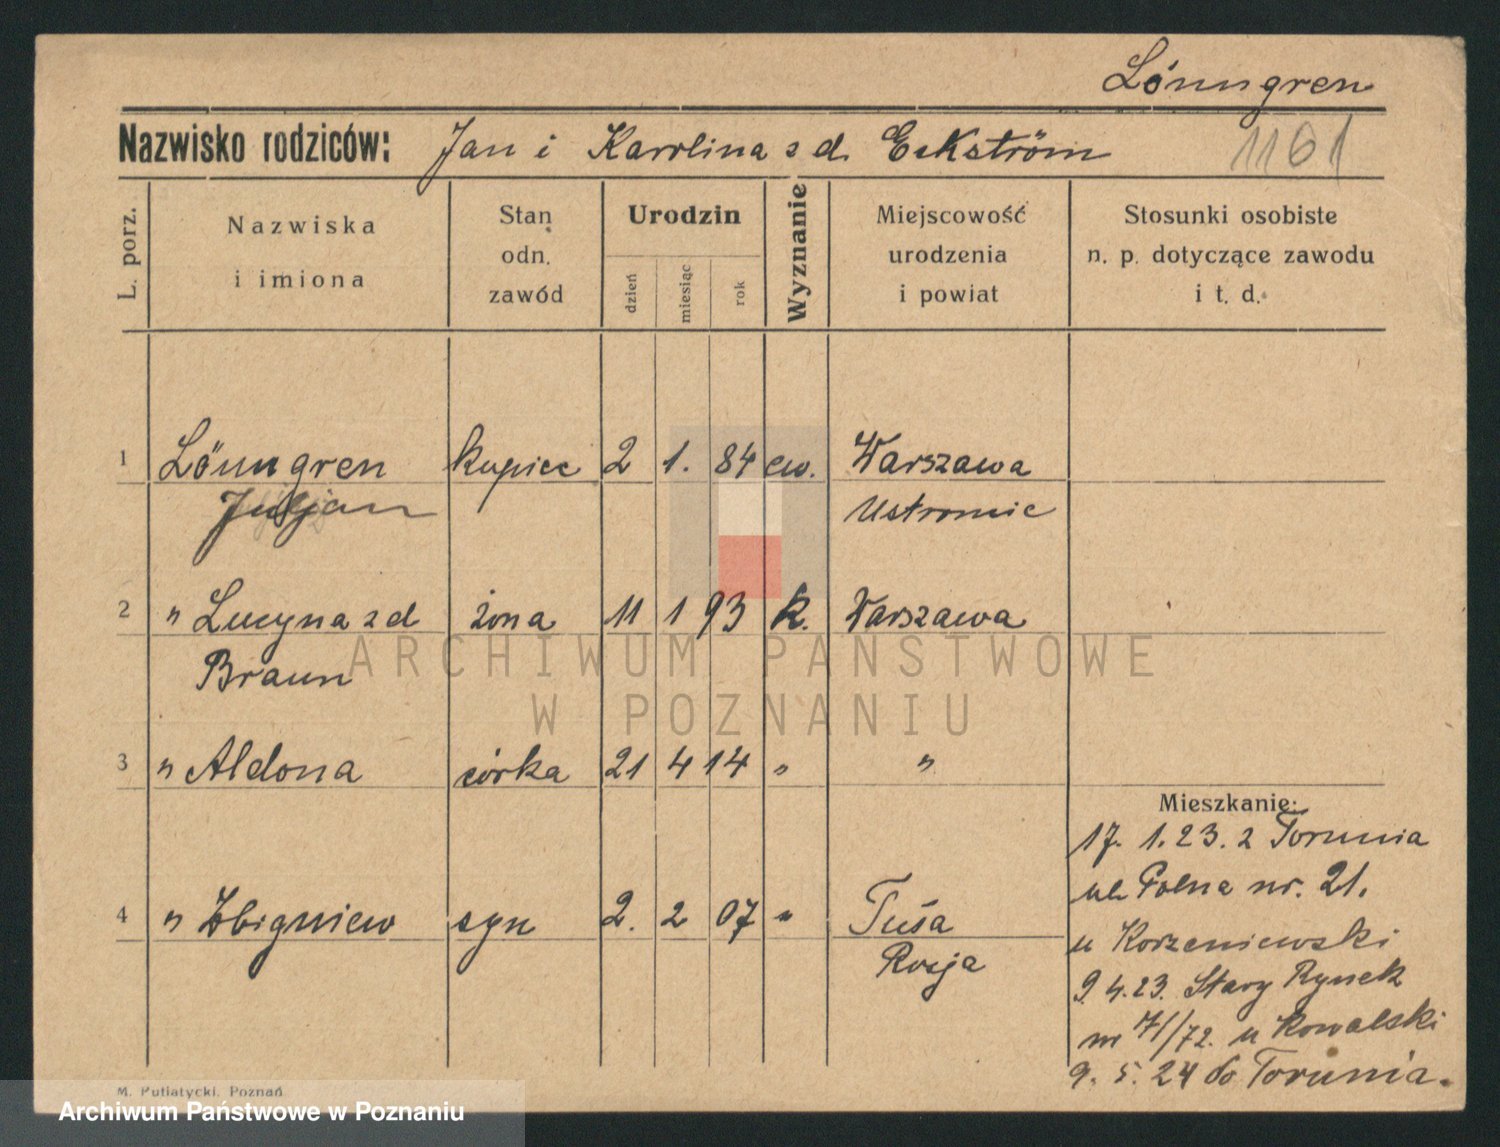 Lönngren
Nazwisko rodziców: Jan i Karolina z d. Eckström 1161
L. porz.
Nazwiska
i imiona
Stan
odn.
zawód
Urodzin
dzień
miesiąc
rok
Wyznanie
Miejscowość
urodzenia
i powiat
Stosunki osobiste
n. p. dotyczące zawodu
i t. d.
1 Lönngren kupiec 2 1. 84 ew. Warszawa
Juljan
2 " Lucyna z d żona 11 1 93 k. Warszawa
Braun
ARCHIWUM PAŃSTWOWE
W POZNANIU
3 " Aldona córka 21 4 14 " "
Mieszkanie:
17. 1. 23. z Torunia
ul. Polna nr. 21.
4 " Zbigniew syn 2. 2 07 "
u Korzeniewski
Rosja
9. 4. 23. Stary Rynek
nr 71/72. u Kowalski
9. 5. 24 do Torunia.
M. Putiatycki, Poznań
Archiwum Państwowe w Poznaniu